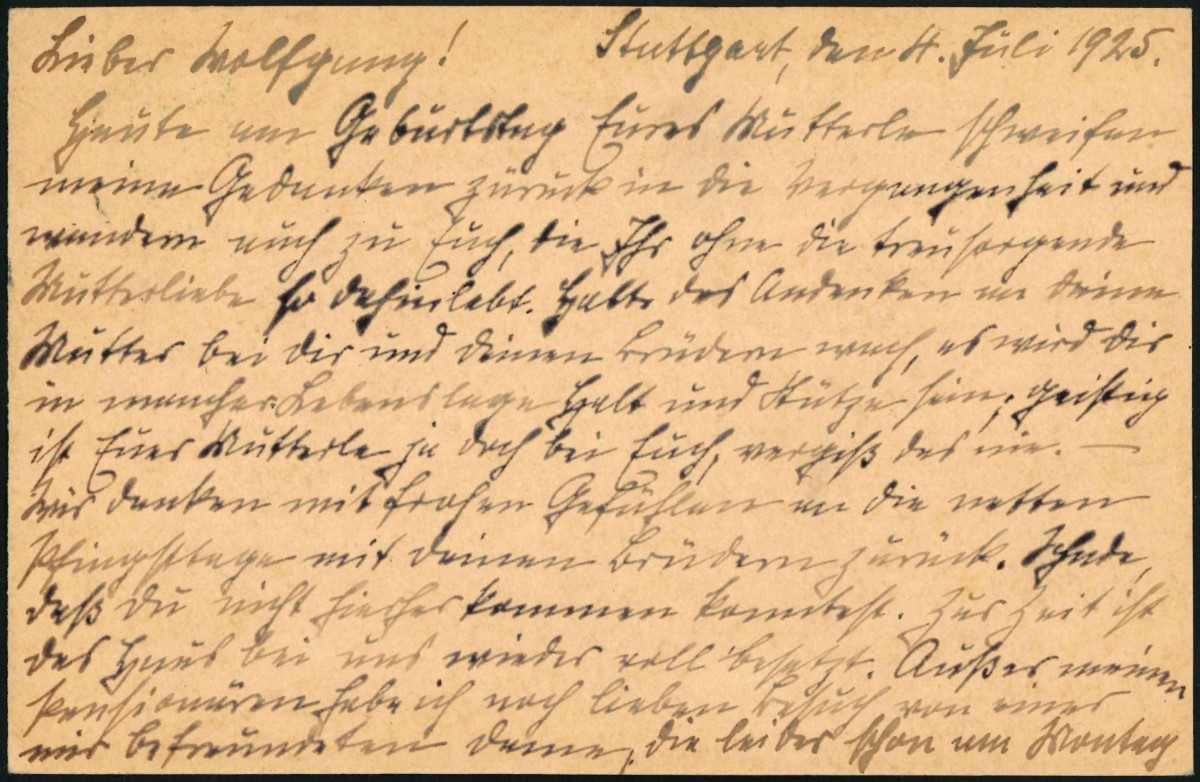 Lieber Wolfgang! Stuttgart, den 4. Juli 1925.
Heute am Geburtstag Eures Mutterle schweifen
meine Gedanken zurück in die Vergangenheit und
wandern auch zu Euch, die Ihr ohne die treusorgende
Mutterliebe so dahinlebt. Halte das Andenken an Deine
Mutter bei Dir und Deinen Brüdern wach, es wird Dir
in mancher Lebenslage Halt und Stütze sein; geistig
ist Euer Mutterle ja doch bei Euch, vergiß das nie. —
Wir denken mit frohen Gefühlen an die netten
Pfingsttage mit Deinen Brüdern zurück. Schade,
daß Du nicht hierher kommen konntest. Zur Zeit ist
das Haus bei uns wieder voll besetzt. Außer meinen
Pensionären habe ich noch lieben Besuch von einer
mir befreundeten Dame, die leider schon am Montag